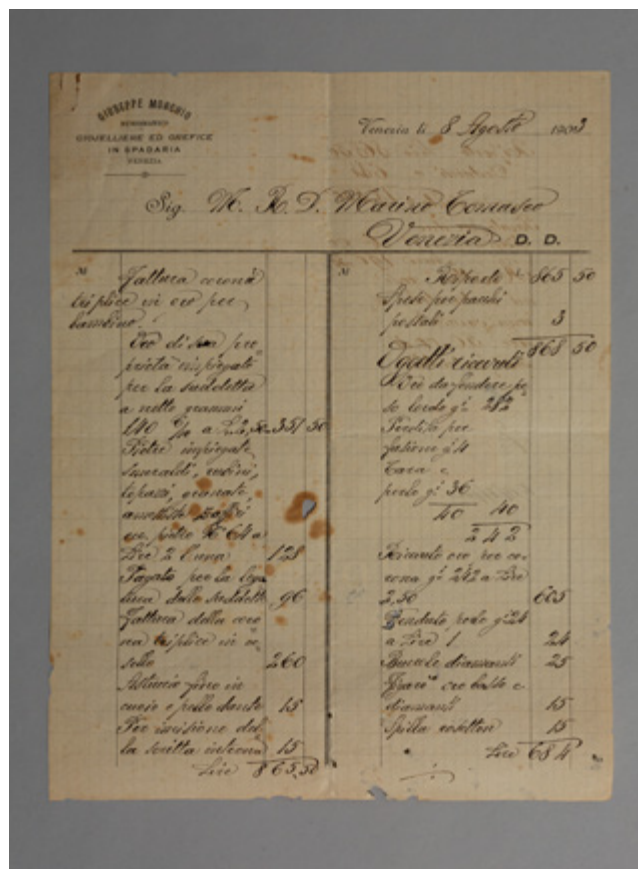 GIUSEPPE MORCHIO
GIOJELLIERE ED OREFICE
IN SPADARIA
VENEZIA
Venezia li 8 Agosto 1903
Sig. M. R. D. Marino Tomaseo
Venezia D. D.
Fattura corona
triplice in oro per
bambino.
Oro di sua pro=
prietà impiegato
per la suddetta
a netto grammi
140 6/10 a Lire 2,50 351 50
Pietre impiegate
smeraldi, rubini,
topazi, granate,
ametiste zaffiri
ecc. pietre N° 64 a
Lire 2 l'una 128
Pagato per la lega
tura delle suddette 96
Fattura della coro
na triplice in ce
sello 260
Astuccio fino in
cuoio e pelle dante 15
Per incisione del
la scritta interna 15
Lire 865,50
Riporto 865 50
Spese per pacchi
postali 3
868 50
Oggetti ricevuti
Oro da fondere pe
so lordo gr. 282
Perdita per
fusione gr 4
Tara e
perle gr. 36
40 40
242
Ricavato oro per co=
rona gr. 242 a Lire
2,50 605
Vendute perle gr 24
a Lire 1 24
Buccole diamanti 25
oro basso e
diamanti 15
Spilla rosetton 15
Lire 684